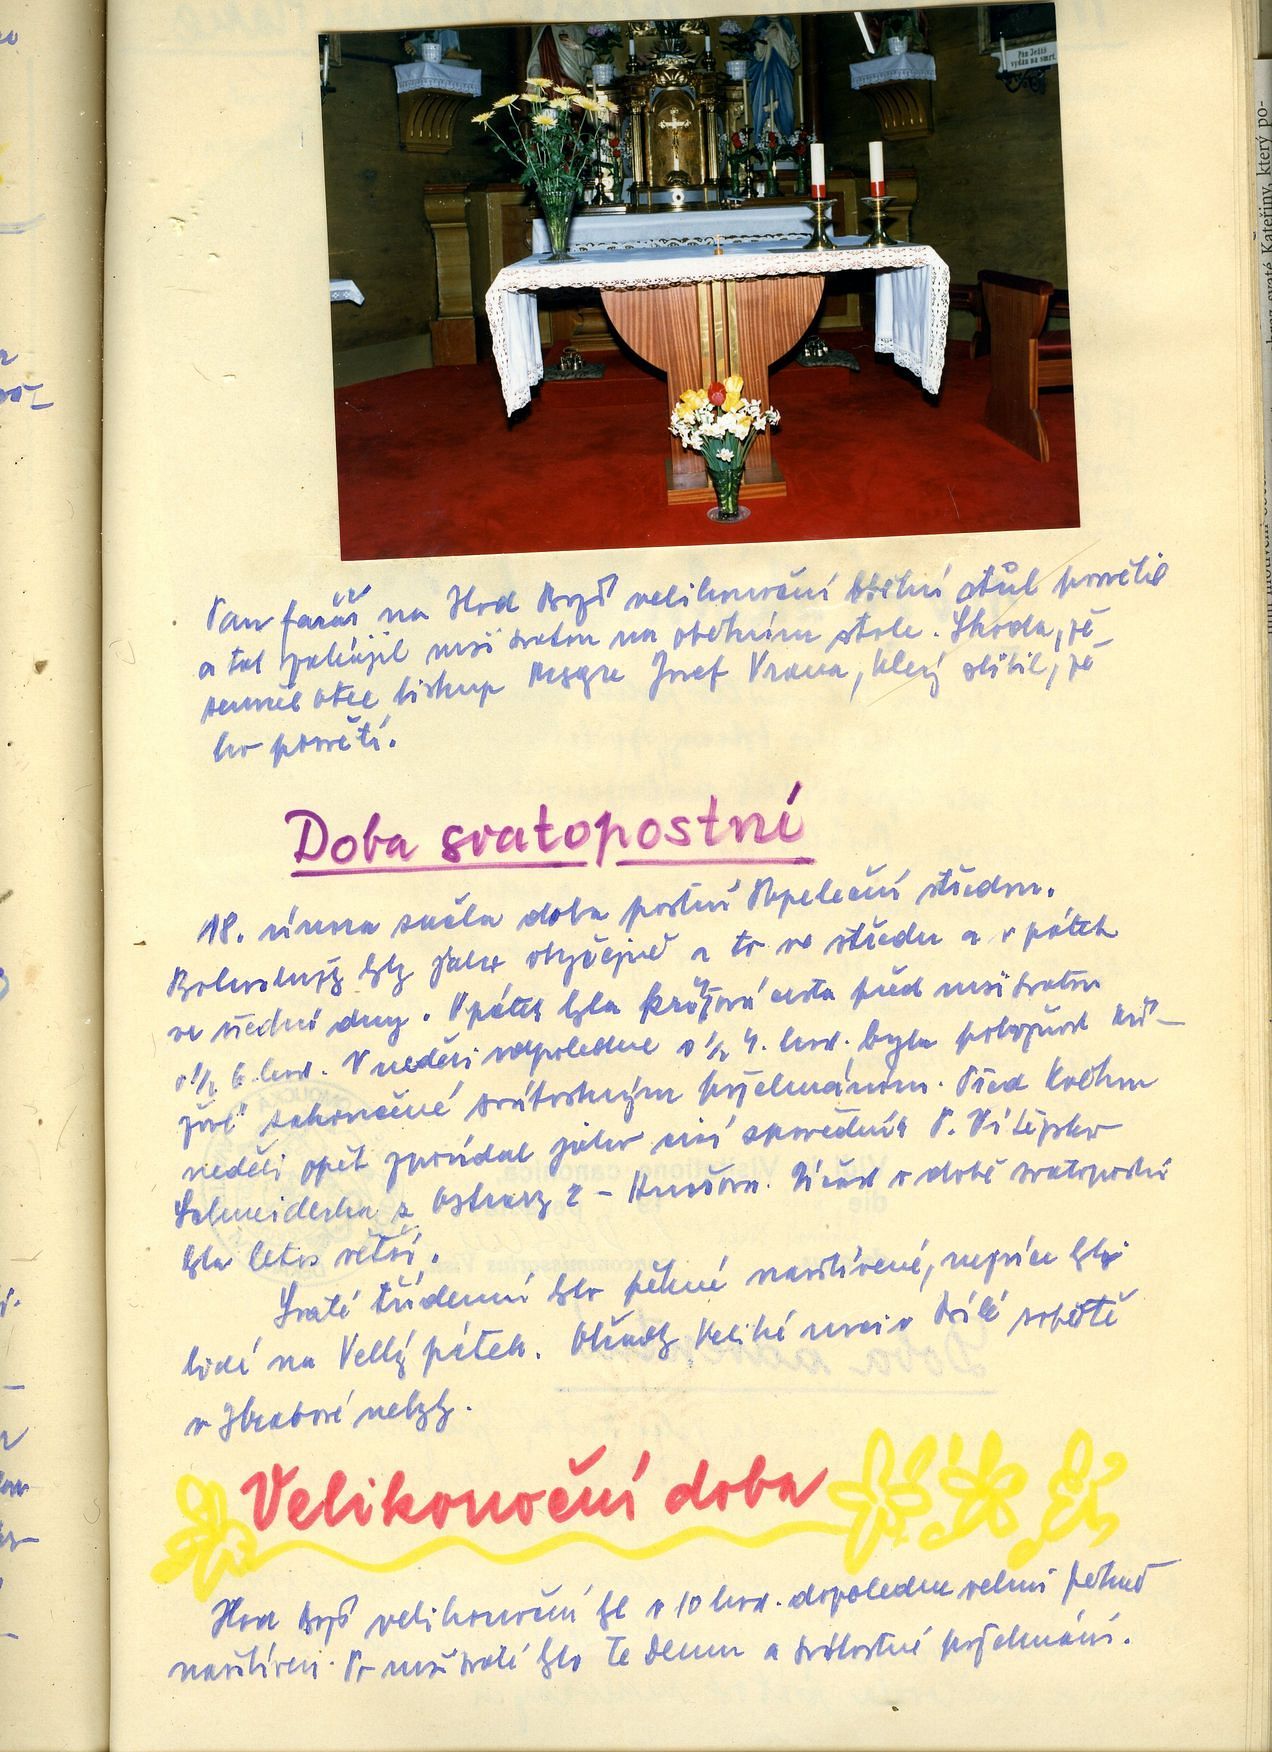 Pán Ježíš
vydán na smrt.
Pan farář na Hod Boží velikonoční obětní stůl posvětil
a tak zahájil mši svatou na obětním stole. Škoda, že
zemřel otec biskup Msgre Josef Vrana, který slíbil, že
ho posvětí.
Doba svatopostní
18. února začla doba postní Popeleční středou.
Bohoslužby byly jako obyčejně a to ve středu a v pátek
ve všední dny. V pátek byla křížová cesta před mší svatou
v 1/2 6. hod. V neděli odpoledne v 1/2 4. hod. byla pobožnost kří-
žové zakončené svátostným požehnáním. Před Květnou
nedělí opět zpovídal jako cizí zpovědník P. Vítězslav
Schneiderka z Ostravy 2 - Kunčova. Účast v době svatopostní
byla letos větší.
Svaté třídenní bylo pěkně navštívené, nejvíce bylo
lidí na Velký pátek. Obřady Veliké noci v Bílé sobotě
v Hrabové nebyly.
Velikonoční doba
Hod Boží velikonoční byl v 10 hod. dopoledne velmi pěkně
navštíven. Po mši svaté bylo Te Deum a svátostné požehnání.